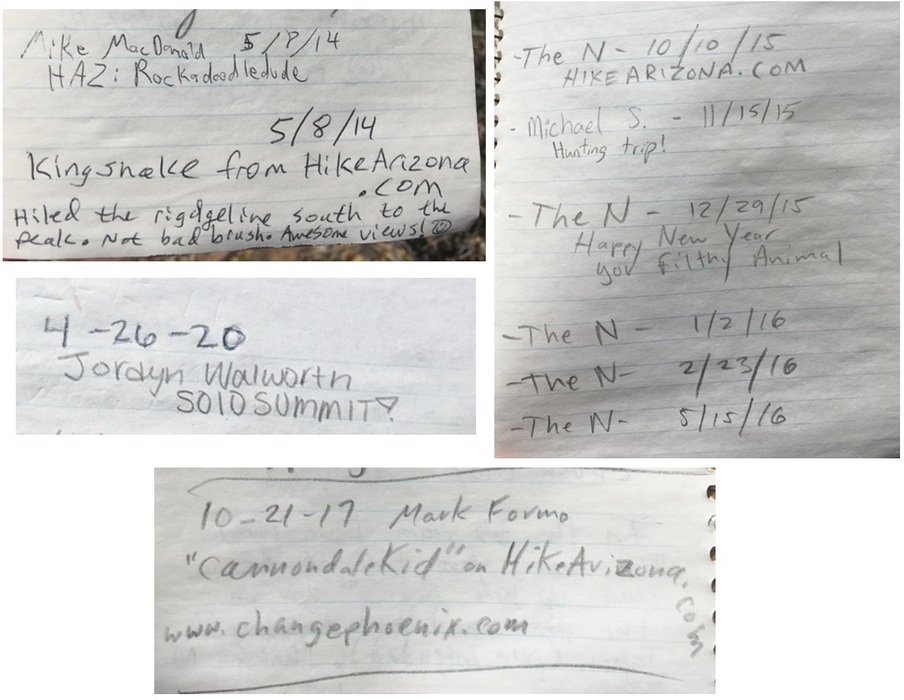 Mike MacDonald 5/8/14
HAZ: Rockadoodledude
5/8/14
Kingsnake from HikeArizona
.com
Hiled the rigdgeline south to the
peak. Not bad brush. Awesome views! ☺
-The N- 10/10/15
HIKEARIZONA.COM
- Michael S. - 11/15/15
Hunting trip!
-The N- 12/29/15
Happy New Year
you Filthy Animal
-The N- 1/2/16
-The N- 2/23/16
-The N- 5/15/16
4-26-20
Jordyn Walworth
SOLO SUMMIT
10-21-17 Mark Formo
"CannondaleKid" on HikeArizona.
com
www.changephoenix.com